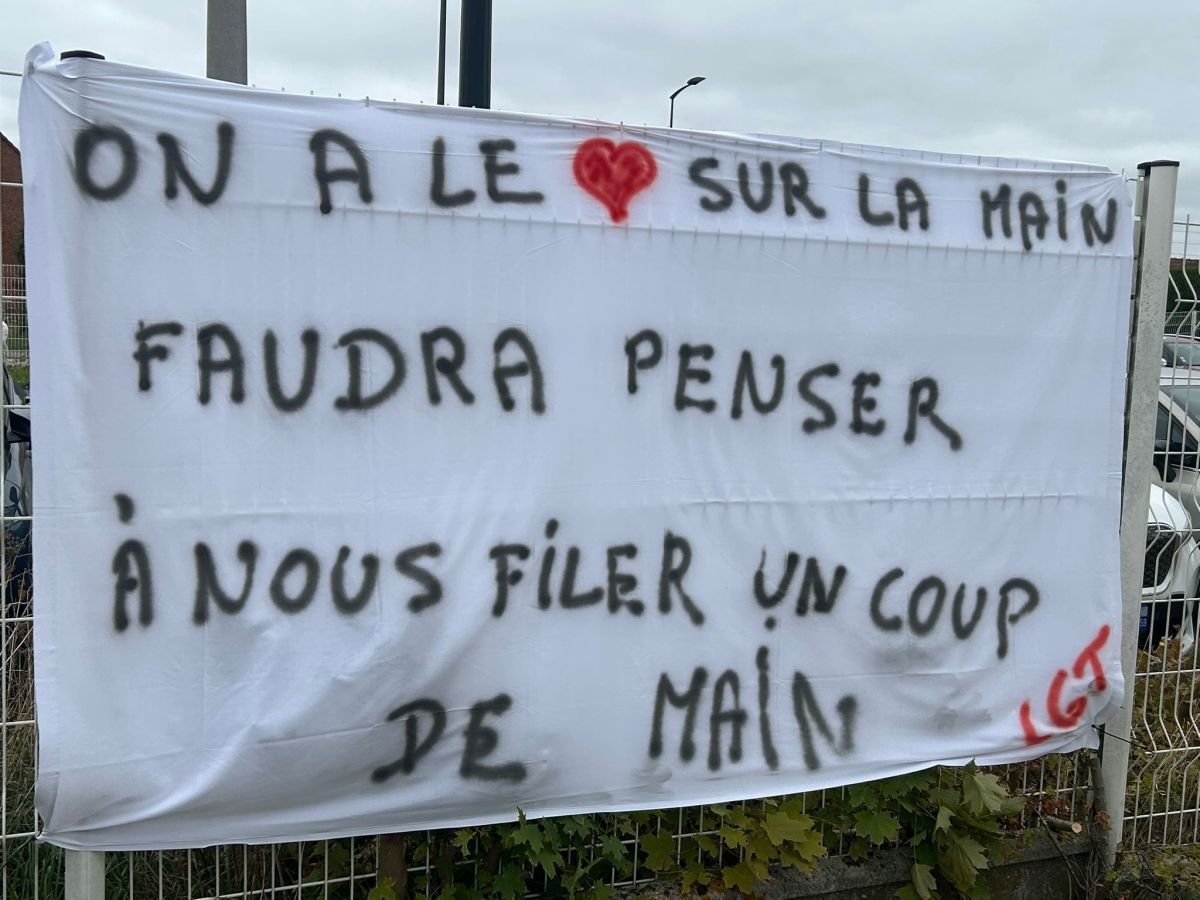 ON A LE ❤ SUR LA MAIN
FAUDRA PENSER
À NOUS FILER UN COUP
DE MAIN
LGT